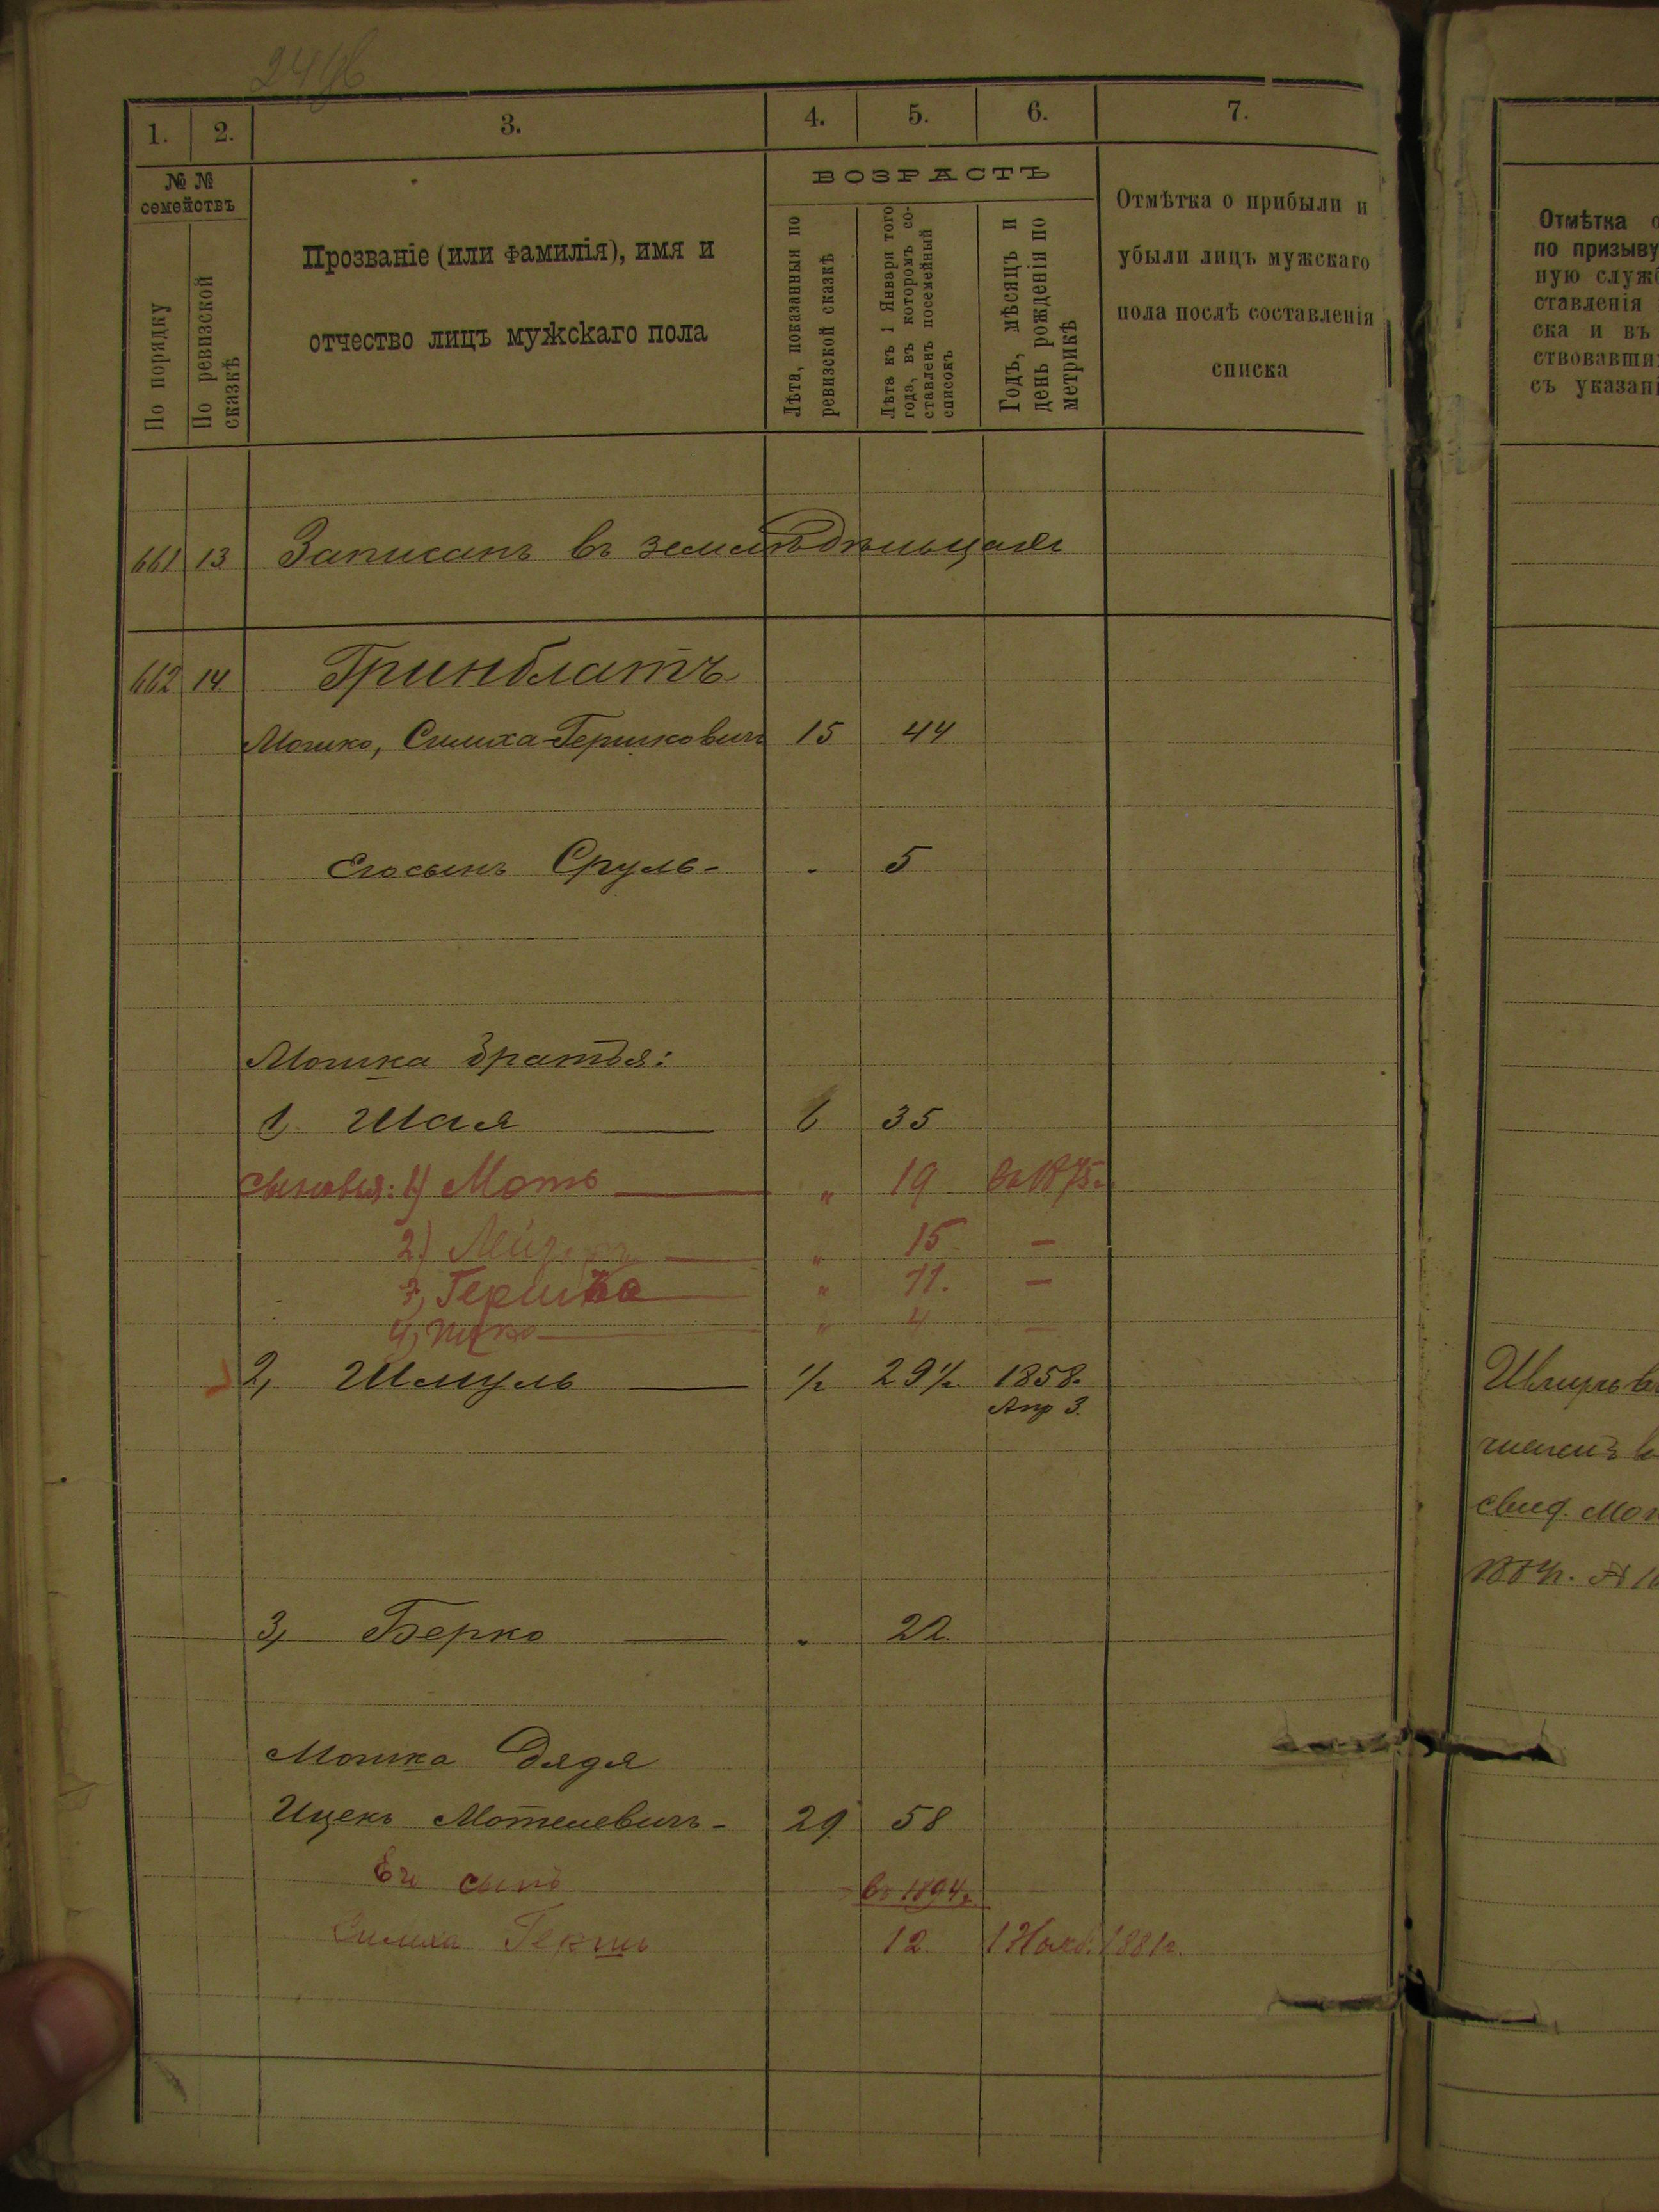 1. 2. 3. 4. 5. 6. 7.
№ №
семействъ
По порядку
По ревизской
сказкѣ
Прозваніе (или фамилія), имя и
отчество лицъ мужскаго пола
ВОЗРАСТЪ
Лѣта, показанныя по
ревизской сказкѣ
Лѣта къ 1 Января того
года, въ которомъ со-
ставленъ посемейный
списокъ
Годъ, мѣсяцъ и
день рожденія по
метрикѣ
Отмѣтка о прибыли и
убыли лицъ мужскаго
пола послѣ составленія
списка
661 13 Записанъ въ земледѣльцахъ
662 14. Гринблатъ
Мошко, Симха-Гершковичъ 15 44
Его сынъ Сруль - 5
Мошка братья:
1, Шая 6 35
сыновья: 1) Моть " 19 въ 1875г.
2) " 15 —
3, Гершко " 11. —
4, " 4 —
2, Шмуль ½ 29½ 1858.
Апр 3.
3, Берко 22.
Мошка дядя
Ицекъ Мотелевичъ - 29. 58
Его сынъ въ 1894г.
Симха Гершъ 12. 1881г.
Отмѣтка о
по призыву
ную служб
ставленія
ска и въ
ствовавши
съ указані
Шмуль
свид.